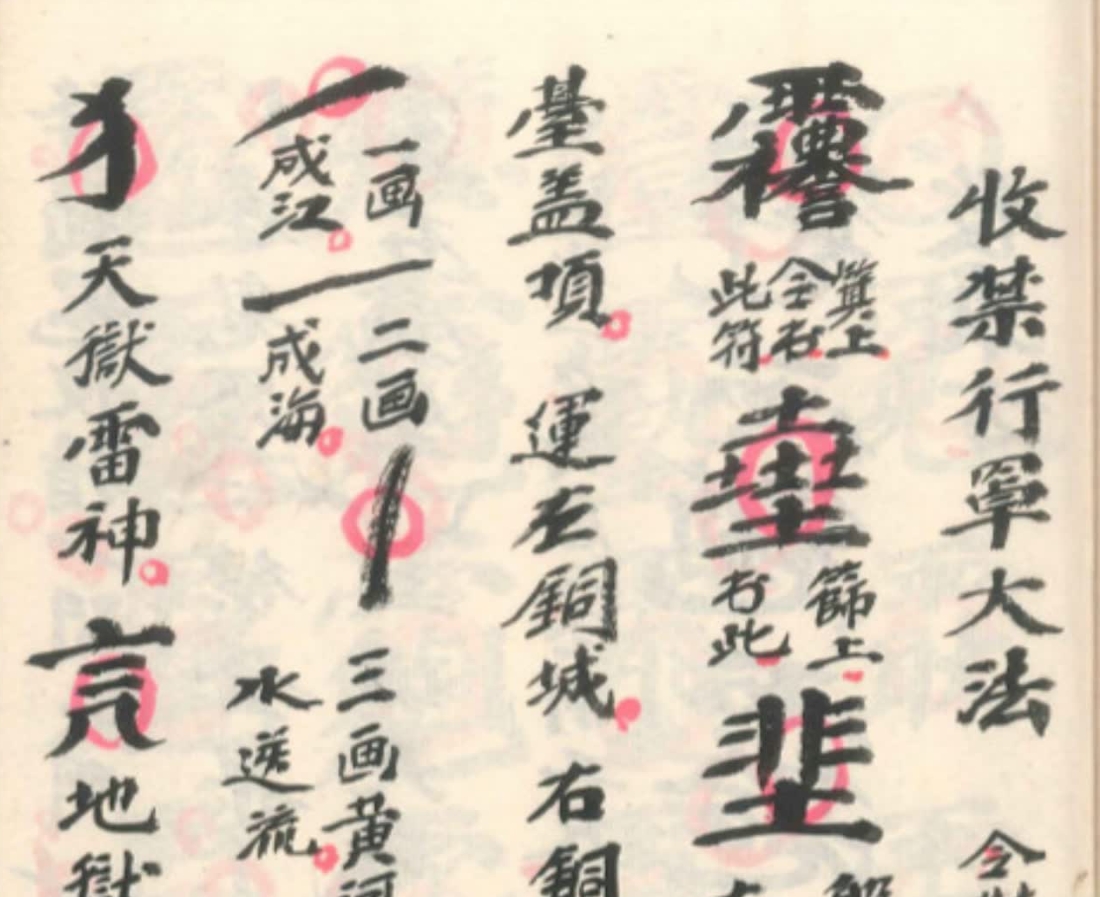 收禁行罩大法 令
箕上令右此符 篩上右此
臺盖項 運左銅城 右銅
一 一画成江 一 二画成海 丨 三画黄河水逆流
天獄雷神 地獄